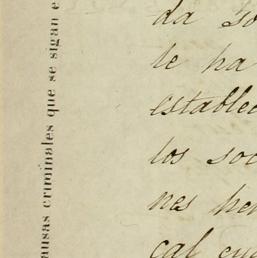 ausas criminales que se sigan e
da so
le ha
establec
los soc
nes her
cal cu